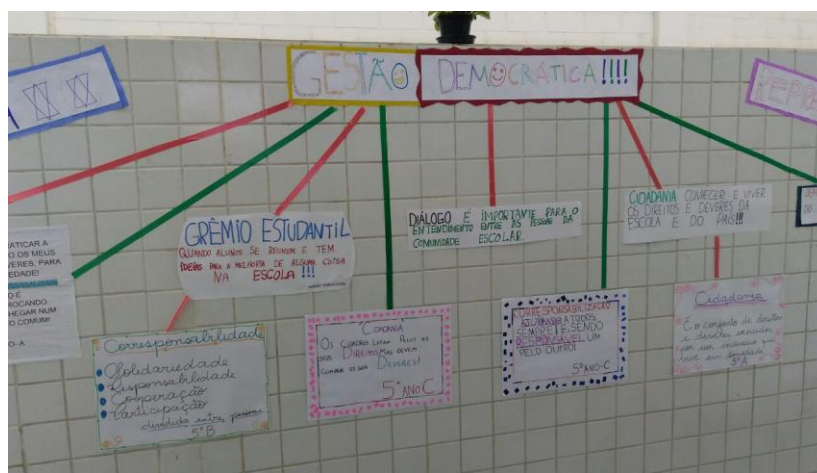 GESTÃO DEMOCRÁTICA!!!!
GRÊMIO ESTUDANTIL
QUANDO ALUNOS SE REUNEM E TEM
IDEIAS PARA A MELHORIA DE ALGUMA COISA
NA ESCOLA!!!
DIÁLOGO É IMPORTANTE PARA O
ENTENDIMENTO ENTRE AS PESSOAS DA
COMUNIDADE ESCOLAR.
CIDADANIA CONHECER E VIVER
OS DIREITOS E DEVERES DA
ESCOLA E DO PAÍS!!!
RATICAR A
O OS MEUS
VERES, PARA
EDADE!
O É
ROCANDO
HEGAR NUM
O COMUM!
O-A
Corresponsabilidade
Solidariedade
Responsabilidade
Cooperação
Participação
dividida entre pessoas
5°B
CIDADANIA
OS CIDADÃO LUTAM PELOS OS
SEUS DIREITOS, MAS DEVEM
CUMPRIR OS SEUS DEVERES!
5°ANO C
CORRESPONSABILIZAÇÃO
AJUDANDO A TODOS
SEMPRE! E, SENDO
RESPONSÁVEL UM
PELO OUTRO!
5°ANO-C
Cidadania
É o conjunto de direitos
e deveres exercidos
por um indivíduo que
vive em sociedade
5°A